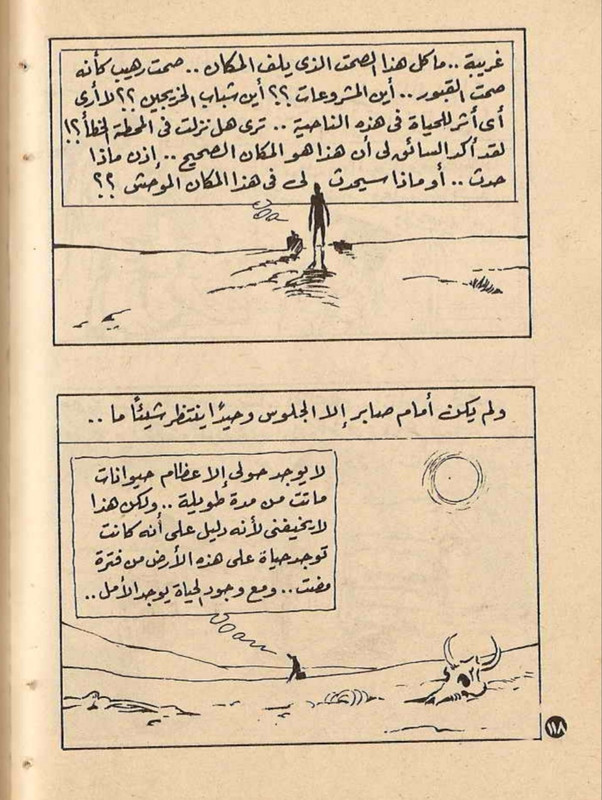 غريبة .. ما كل هذا الصمت الذى يلف المكان .. صمت رهيب كأنه
صمت القبور .. أين المشروعات ؟؟ أين شباب الخريجين ؟؟ لا أرى
أى أثر للحياة فى هذه الناحية .. ترى هل نزلت فى المحطة الخطأ ؟!
لقد أكد السائق لى أن هذا هو المكان الصحيح .. إذن ماذا
حدث .. أو ماذا سيحدث لى فى هذا المكان الموحش ؟؟
ولم يكن أمام صابر إلا الجلوس وحيدًا ينتظر شيئًا ما ..
لا يوجد حولى إلا عظام حيوانات
ماتت من مدة طويلة .. ولكن هذا
لا يخيفنى لأنه دليل على أنه كانت
توجد حياة على هذه الأرض من فترة
مضت .. ومع وجود الحياة يوجد الأمل ..
١١٨